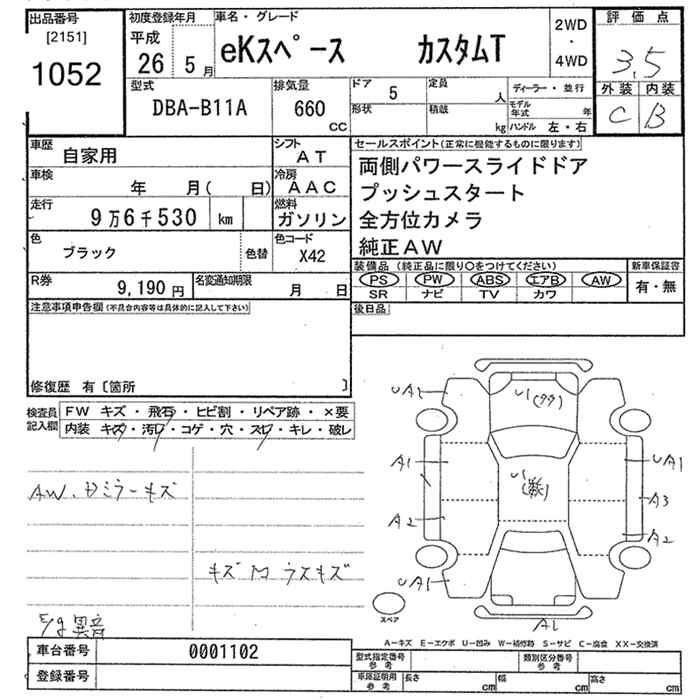 出品番号
[2151]
1052
初度登録年月
平成
26 5月
車名・グレード
eKスペース カスタムT
2WD
・
4WD
評価点
3.5
外装 内装
C B
型式
DBA-B11A
排気量
660
CC
ドア 5
形状
定員 人
積載 kg
ディーラー・並行
モデル年式 年
ハンドル 左・右
車歴
自家用
シフト
AT
車検
年 月( 日)
冷房
AAC
走行
9万6千530 km
燃料
ガソリン
色
ブラック
色替
色コード
X42
R券
9,190円
名変通知期限
月 日
セールスポイント(正常に機能するものに限ります)
両側パワースライドドア
プッシュスタート
全方位カメラ
純正AW
装備品 (純正品に限り○をつけてください)
PS PW ABS エアB AW
SR ナビ TV カワ
新車保証書
有・無
後日品
注意事項申告欄(不具合内容等は具体的に記入して下さい)
修復歴 有〔箇所 〕
検査員記入欄
FW キズ・飛石・ヒビ割・リペア跡・×要
内装 キズ・汚レ・コゲ・穴・スレ・キレ・破レ
AW.Dミラーキズ
キズ M ウスキズ
E/g異音
UA1
U1
A1
U1
UA1
A3
A2
A2
UA1
A1
スペア
A－キズ E－エクボ U－凹み W－補修跡 S－サビ C－腐食 XX－交換済
車台番号 0001102
登録番号
型式指定番号
参考
類別区分番号
参考
車庫証明用
参考
長さ cm
幅 cm
高さ cm